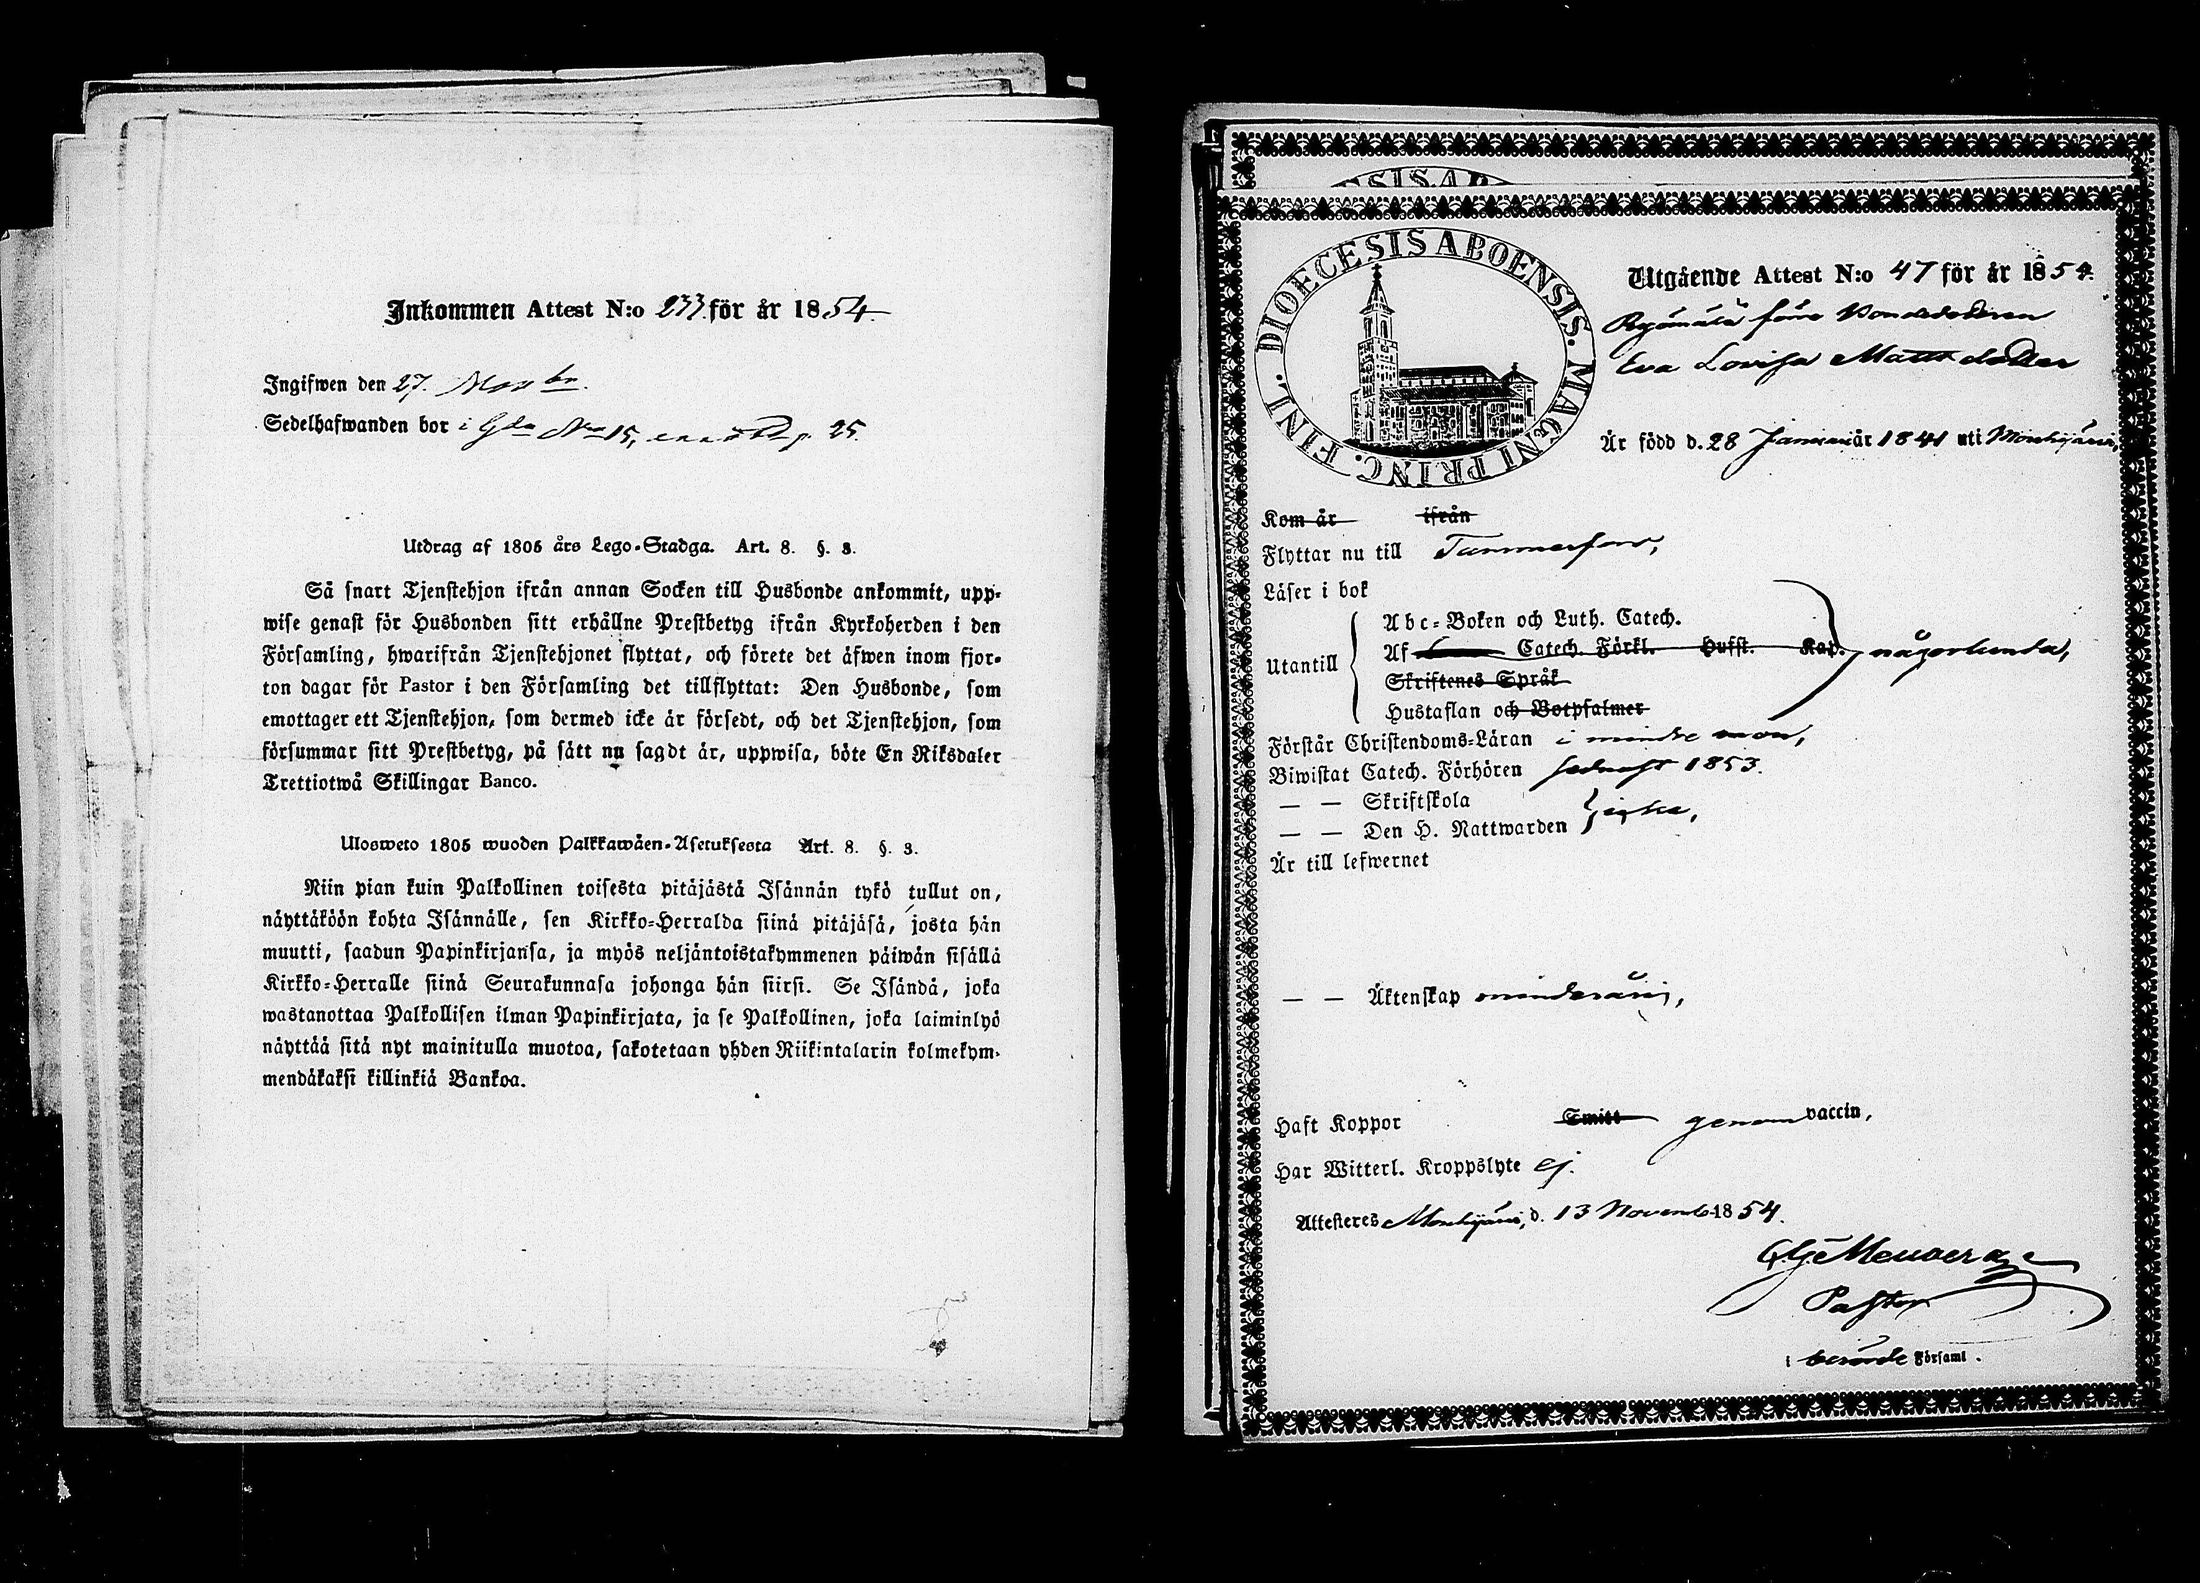 Inkommen Attest N:o 233 för år 1854
Ingifwen den 27. Novbr.
Sedelhafwanden bor i Gda No 15, 25.
Utdrag af 1805 års Lego-Stadga. Art. 8. §. 3.
Så snart Tjenstehjon ifrån annan Socken till Husbonde ankommit, upp-
wise genast för Husbonden sitt erhållne Prestbetyg ifrån Kyrkoherden i den
Församling, hwarifrån Tjenstehjonet flyttat, och förete det äfwen inom fjor-
ton dagar för Pastor i den Församling det tillflyttat: Den Husbonde, som
emottager ett Tjenstehjon, som dermed icke är försedt, och det Tjenstehjon, som
försummar sitt Prestbetyg, på sätt nu sagdt är, uppwisa, böte En Riksdaler
Trettiotwå Skillingar Banco.
Ulosweto 1805 wuoden Palkkawäen-Asetuksesta Art. 8. §. 3.
Niin pian kuin Palkollinen toisesta pitäjästä Isännän tykö tullut on,
näyttäköön kohta Isännälle, sen Kirkko-Herralda siinä pitäjäsä, josta hän
muutti, saadun Papinkirjansa, ja myös neljäntoistakymmenen päiwän sisällä
Kirkko-Herralle siinä Seurakunnasa johonga hän siirsi. Se Isändä, joka
wastanottaa Palkollisen ilman Papinkirjata, ja se Palkollinen, joka laiminlyö
näyttää sitä nyt mainitulla muotoa, sakotetaan yhden Riikintalarin kolmekym-
mendäkaksi killinkiä Bankoa.
DIOECESIS ABOENSIS. MAGNI PRINC. FINL.
Utgående Attest N:o 47 för år 1854.
Bondedottren
Eva Lovisa Mattsdotter
Är född d. 28 Januari år 1841 uti Mouhijärvi,
Kom år ifrån
Flyttar nu till Tammerfors,
Läser i bok
Abc-Boken och Luth. Catech.
Utantill Af Catech. Förkl. Hufst. Kap. någorlunda,
Skriftenes Språk
Hustaflan och Botpsalmer
Förstår Christendoms-Läran i mindre mon,
Biwistat Catech. Förhören sednast 1853.
— — Skriftskola
— — Den H. Nattwarden } icke,
Är till lefwernet
— — Äktenskap minderårig,
Haft Koppor Smitt genom vaccin,
Har Witterl. Kroppslyte ej.
Attesteres Mouhijärvi, d. 13 Novemb 1854.
Pastor
i berörde Församl.